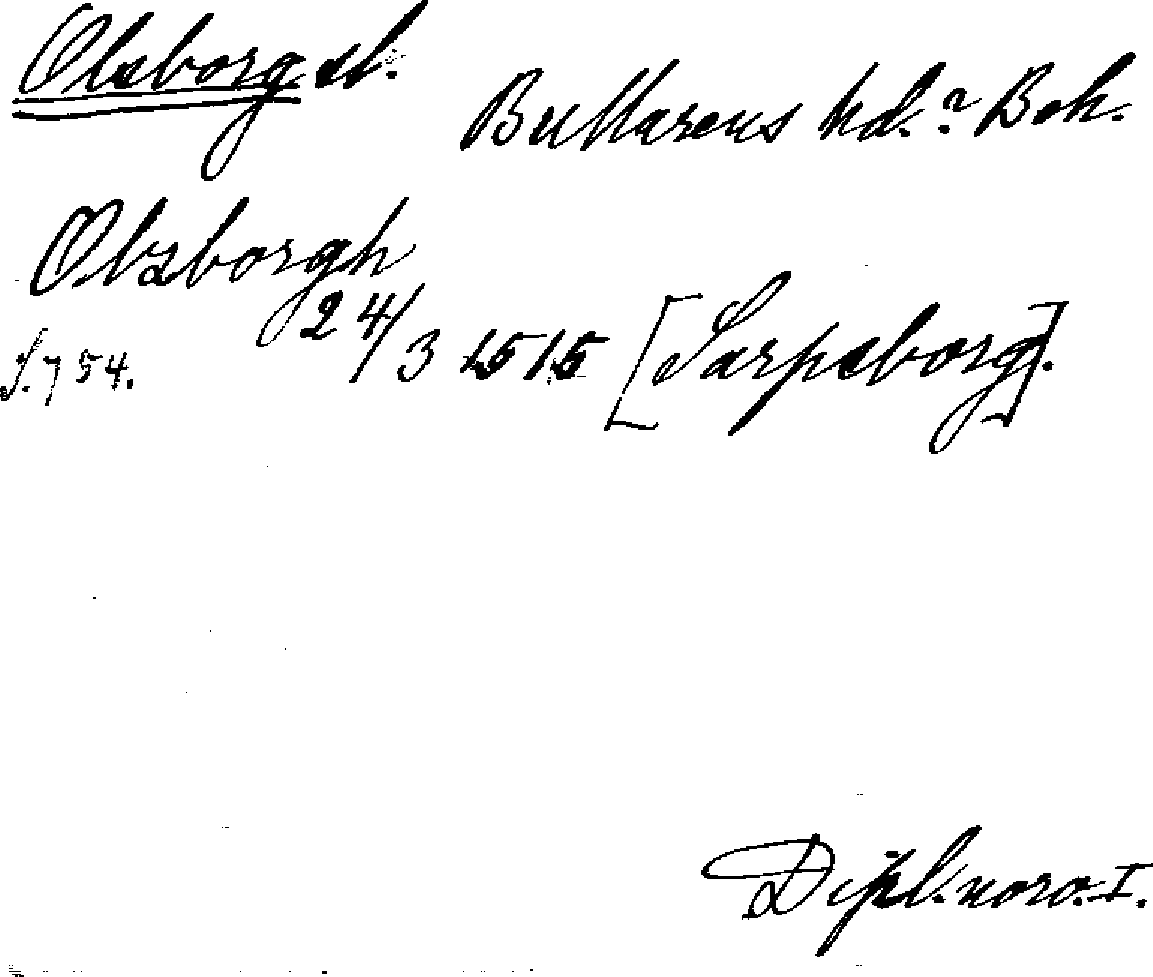 Olsborg sl. Bullarens hd.? Boh.
Olszborgh
24/3 1515 [Sarpsborg].
S. 754.
Dipl. norv. I.